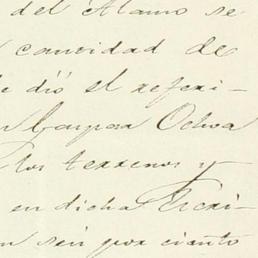 del Alamo se
cantidad de
le dió el referi-
Gaspara Ochoa
los terrenos y
en dicha Escri-
n seis por ciento